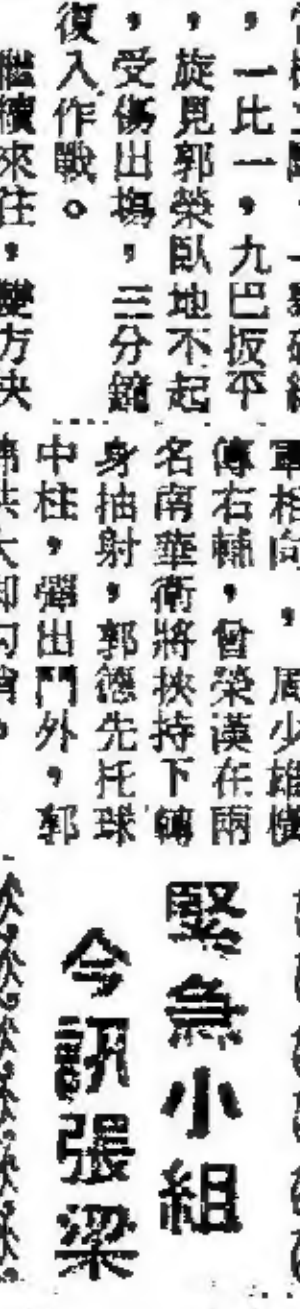 ，一比一，九巴扳平
，旋見郭榮臥地不起
，受傷出塲，三分鐘
復入作戰。
繼續來往，雙方決
軍相向，周少雄橫
傳右輔，曾榮漢在兩
名南華衛將挾持下轉
身抽射，郭德先托球
中柱，彈出門外，郭
緊急小組
今訊張梁